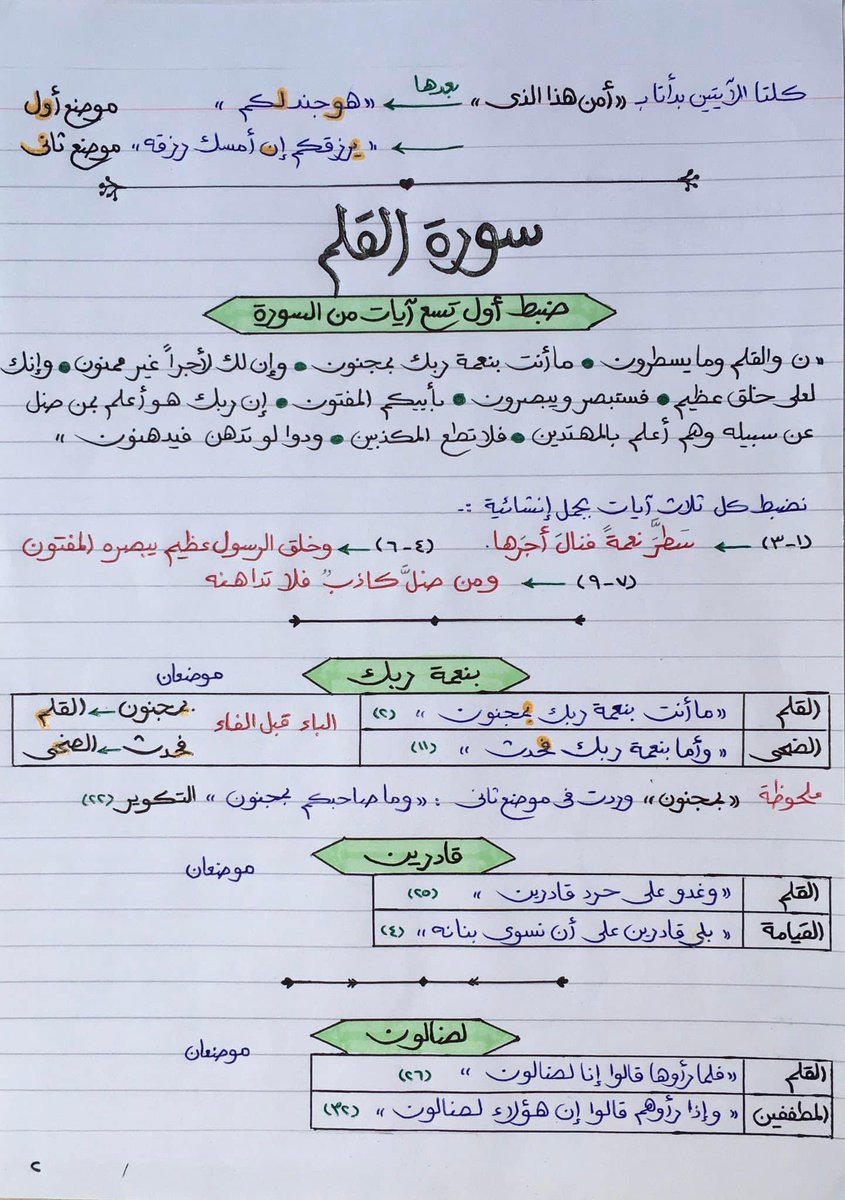 كلتا الآيتين بدأتا بـ «أمن هذا الذى» بعدها ← «هو جند لكم» موضع أول
← «يرزقكم إن أمسك رزقه» موضع ثانى
سورة القلم
ضبط أول تسع آيات من السورة
«ن والقلم وما يسطرون • ما أنت بنعمة ربك بمجنون • وإن لك لأجراً غير ممنون • وإنك
لعلى خلق عظيم • فستبصر ويبصرون • بأييكم المفتون • إن ربك هو أعلم بمن ضل
عن سبيله وهم أعلم بالمهتدين • فلا تطع المكذبين • ودوا لو تدهن فيدهنون»
نضبط كل ثلاث آيات بجمل إنشائية :-
(١-٣) ← سَطَّرَ نعمةً فنالَ أجرَها. (٤-٦) ← وخلق الرسول عظيم يبصره المفتون
(٧-٩) ← ومن ضلَّ كاذبٌ فلا تداهنه
بنعمة ربك موضعان
القلم «ما أنت بنعمة ربك بمجنون» (٢) الباء قبل الفاء بمجنون ← القلم
الضحى «وأما بنعمة ربك فحدث» (١١) فحدث ← الضحى
ملحوظة «بمجنون» وردت فى موضع ثانى : «وما صاحبكم بمجنون» التكوير (٢٢)
قادرين موضعان
القلم «وغدو على حرد قادرين» (٢٥)
القيامة «بلى قادرين على أن نسوى بنانه» (٤)
لضالون موضعان
القلم «فلما رأوها قالوا إنا لضالون» (٢٦)
المطففين «وإذا رأوهم قالوا إن هؤلاء لضالون» (٣٢)
/ ٢